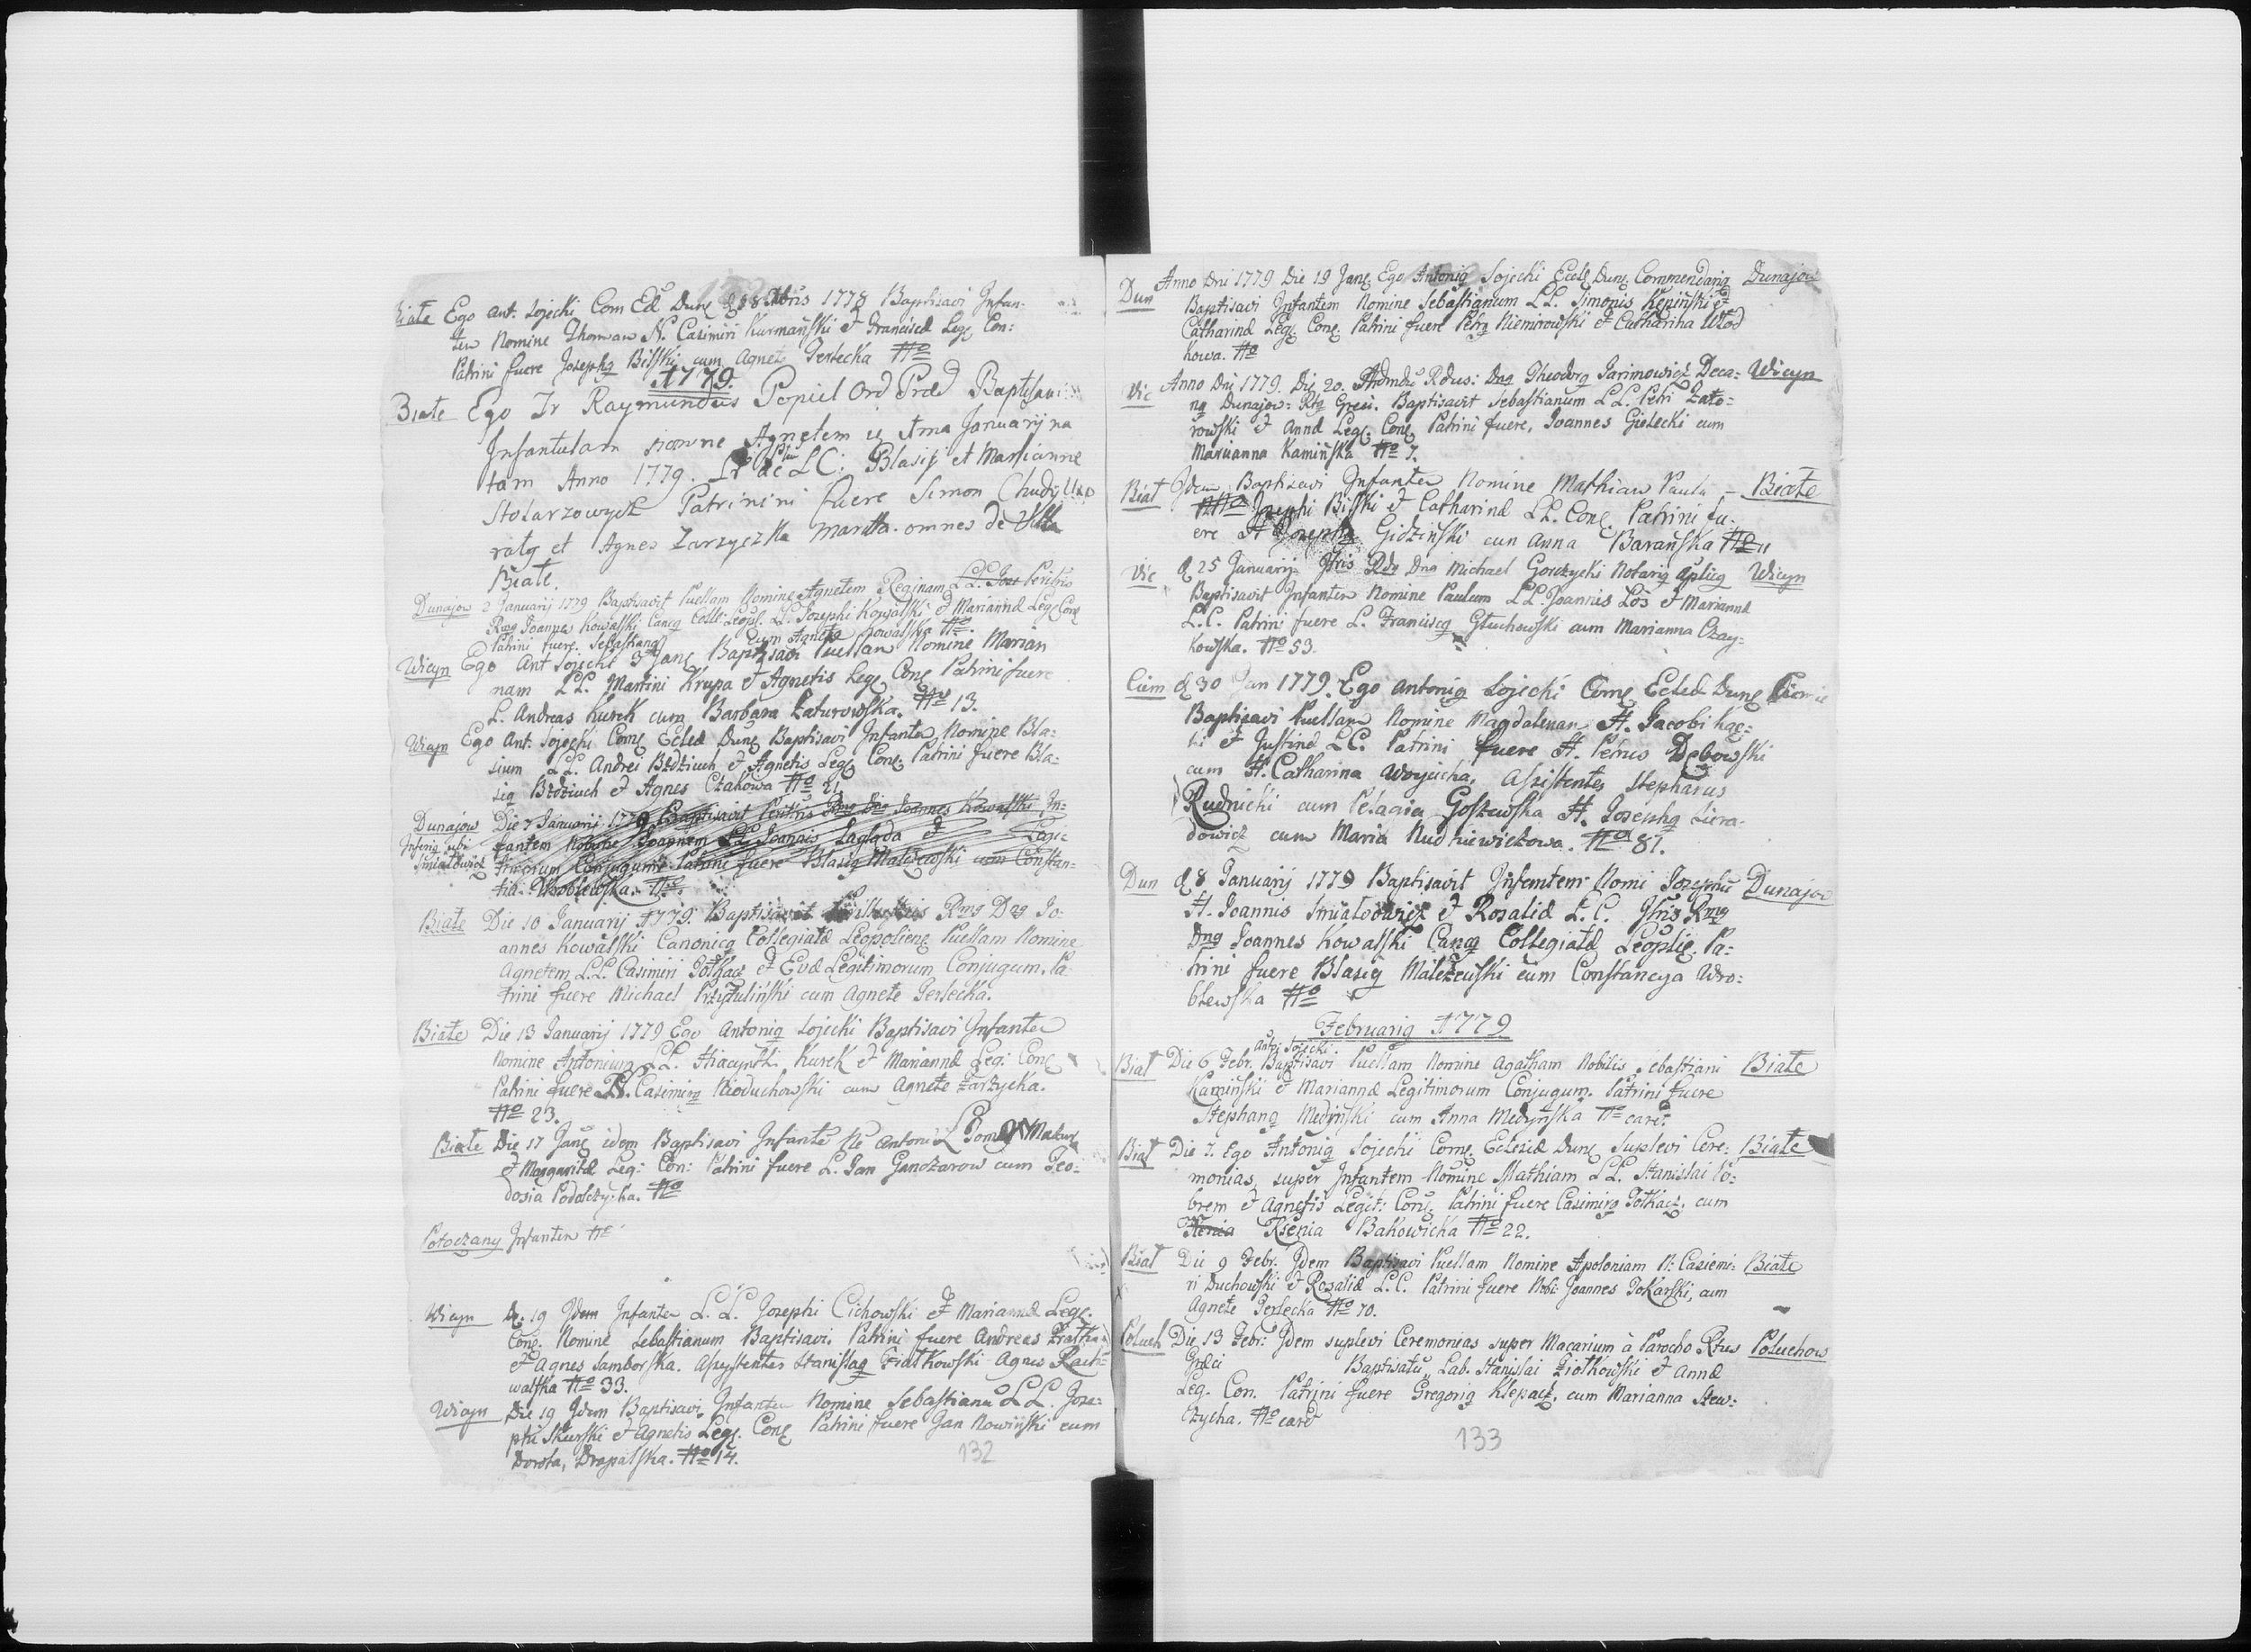 Białe Ego Ant. Sojecki Com Ecl Dune d 28 Xbris 1778 Baptisavi Infan-
tem Nomine Thomam N. Casimiri Kurmański et Francisca Leg. Con:
Patrini fuere Josephq Bilski cum Agnete Terlecka No
A 1779.
Białe Ego Fr Raymundus Popiel Ord Præd Baptisavi
Infantulam nomine Agnetem Januarij na
tam Anno 1779. LC: Blasij et Marianne
Stolarzowych Patrinini fuere Simon
et Agnes Zarzyczka omnes de Villa
Białe.
Dunajow 2 Januarij 1779 Baptisavit Puellam Nomine Agnetem Reginam L.L. Jose Perillris
Rmq Joannes Kowalski Cancq Colle: Leopl. LL. Josephi Kowalski et Mariannæ Leg: Conę
Patrini fuere Sebastianq cum Agnete Kowalska No
Wicyn Ego Ant Sojecki 3 Janę Baptisavi Puellam Nomine Marian
nam L.L. Martini Krupa et Agnetis Legę Conę Patrini fuere
L. Andreas Kurek cum Barbara Zaturowska. No 13.
Wicyn Ego Ant. Sojecki Comę Eclæ Dunę Baptisavi Infantem Nomine Bla-
sium LL. Andrei Bżdżiuch et Agnetis Legę Conę Patrini fuere Bla-
siq Bżdżiuch et Agnes Czakowa No 21
Dunajow Die 7 Januarij 1779 Baptisavit Perillris Rmq Dnq Joannes Kowalski In-
Inferiq ubi fantem Nomine Joannem LL Joannis Zagłoda et Legi-
Smiałowicz timorum Conjugum Patrini fuere Blasiq Małezewski cum Constan-
tia Wroblewska. No
Białe Die 10 Januarij 1779. Baptisavit Rmq Dnq Jo-
annes Kowalski Canonicq Collegiatæ Leopolienę Puellam Nomine
Agnetem L.L. Casimiri Tołkacz et Evæ Legitimorum Conjugum. Pa-
trini fuere Michael Przystuliński cum Agnete Terlecka.
Białe Die 13 Januarij 1779 Ego Antoniq Sojecki Baptisavi Infantem
Nomine Antonium LL. Hiacynthi Kurek et Mariannæ Leg: Conę
Patrini fuere N. Casimirq Nieduchowski cum Agnete Zarzycka.
No 23.
Białe Die 17 Janę idem Baptisavi Infantē Nē Antoni L
et Margaritæ Leg: Con: Patrini fuere L. Jan Ganczarow cum Teo-
dosia Podolczycha. No
Potoczany Infantem No
Wicyn d. 19 Idem Infantem L.L. Josephi Cichowski et Mariannæ Legę.
Conę. Nomine Sebastianum Baptisavi. Patrini fuere Andreas
et Agnes Samborska. Assystentes Stanislaq Ziatkowski Agnes Rach-
walska No 33.
Wicyn Die 19 Idem Baptisavi Infantem Nomine Sebastianū LL. Jose-
phi Skurski et Agnetis Legę. Conę Patrini fuere Jan Nowiński cum
Dorota, Drapalska. No 14.
132
Dun Anno Dni 1779 Die 19 Janę Ego Antoniq Sojecki Eccle Dunę Commendariq Dunajow
Baptisavi Infantem Nomine Sebastianum L.L. Simonis Kępiński et
Catharinæ Legę Conę. Patrini fuere Petrq Niemirowski et Catharina Włod
kowa. No
Vic Anno Dni 1779. Die 20. Admdū Rdus: Dnq Theodorq Jarimowicz Deca- Wicyn
nq Dunajow: Rtq Græci. Baptisavit Sebastianum L.L. Petri Zato-
rowski et Annæ Legę Conę Patrini fuere, Joannes Gielecki cum
Marianna Kamińska No 7.
Biał Idem Baptisavi Infantem Nomine Mathiam Paula Białe
Josephi Bilski et Catharinæ LL. Conę. Patrini fu-
ere Josephq Gidziński cum Anna Barańska No 11
Vic d 25 Januarij Illris Rdq Dnq Michael Gorczycki Notariq Aplicq Wicyn
Baptisavit Infantem Nomine Paulum LL. Joannis Łoś et Mariannæ
L.C. Patrini fuere L. Franciscq Głuchowski cum Marianna Czay-
kowska. No 53.
Ciem d 30 Jan 1779. Ego Antoniq Sojecki Comę Eclæ Dunę
Baptisavi Puellam Nomine Magdalenam H. Jacobi
et Justinæ LC. Patrini fuere H. Petrus Dębowski
cum H. Catharina Woycicha, Assistentes Stephanus
Rudnicki cum Pelagia Goszewska H. Josephq Siera-
dowicz cum Maria No 81.
Dun d 8 Januarij 1779 Baptisavit Infantem Nomi Josephū Dunajow
H. Joannis Smiałowicz et Rosaliæ L.C. Illris Rmq
Dnq Joannes Kowalski Cancq Collegiatæ Leoplię. Pa-
trini fuere Blasiq Małezewski cum Constancya Wro-
blewska No
Februariq A 1779
Anto: Sojecki
Biał Die 6 Febr. Baptisavi Puellam Nomine Agatham Nobilis Sebastiani Białe
Kamiński et Mariannæ Legitimorum Conjugum. Patrini fuere
Stephanq Medyński cum Anna Medyńska No caret
Biał Die 7. Ego Antoniq Sojecki Comę Eclesiæ Dunę suplevi Cere- Białe
monias, super Infantem Nomine Mathiam LL. Stanislai
et Agnetis Legit: Conę. Patrini fuere Casimirq Tołkacz, cum
Xenia Ksenia Bakowicka No 22.
Biał Die 9 Febr. Idem Baptisavi Puellam Nomine Apoloniam N. Casiemi- Białe
ri Duchowski et Rosaliæ L.C. Patrini fuere Nob: Joannes Tokarski, cum
Agnete Terlecka No 70.
Poluch Die 13 Febr: Idem suplevi Ceremonias super Macarium à Parocho Rtus Poluchow
Græci Baptisatū Lab. Stanislai Ziołkowski et Annæ
Leg. Con. Patrini fuere Gregoriq Klepacz, cum Marianna Stew-
czycha. No caret
133